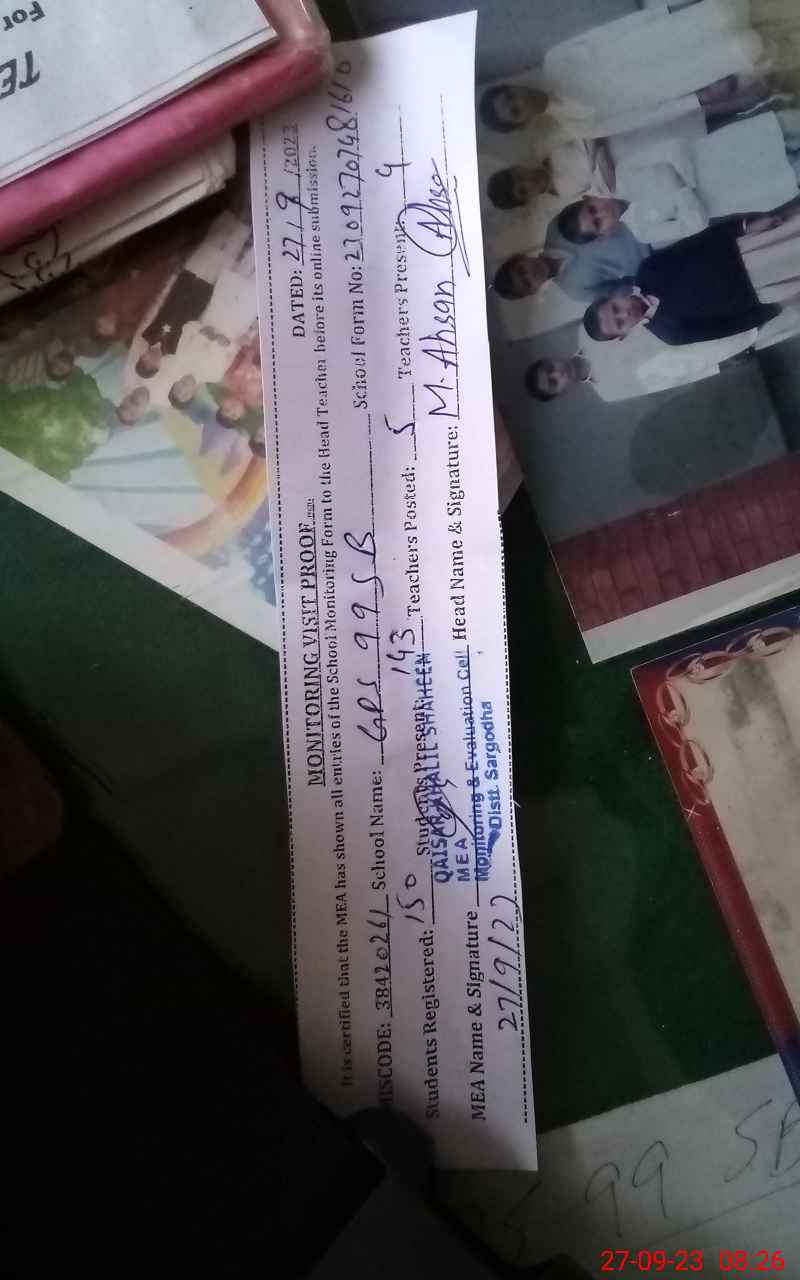 TE
For
MONITORING VISIT PROOF
DATED: 27/9/2023
It is certified that the MEA has shown all entries of the School Monitoring Form to the Head Teacher before its online submission.
MISCODE: 38420261 School Name: GPS 99 SB School Form No: 230927074816 10
Students Registered: 150 Students Present 143 Teachers Posted: 5 Teachers Present 4
QAISAR KHALIL SHAHEEN
MEA
Monitoring & Evaluation Cell
Distt. Sargodha
MEA Name & Signature Head Name & Signature: M. Ahsan Ahsan
27/9/23
99 SB
27-09-23 08:26